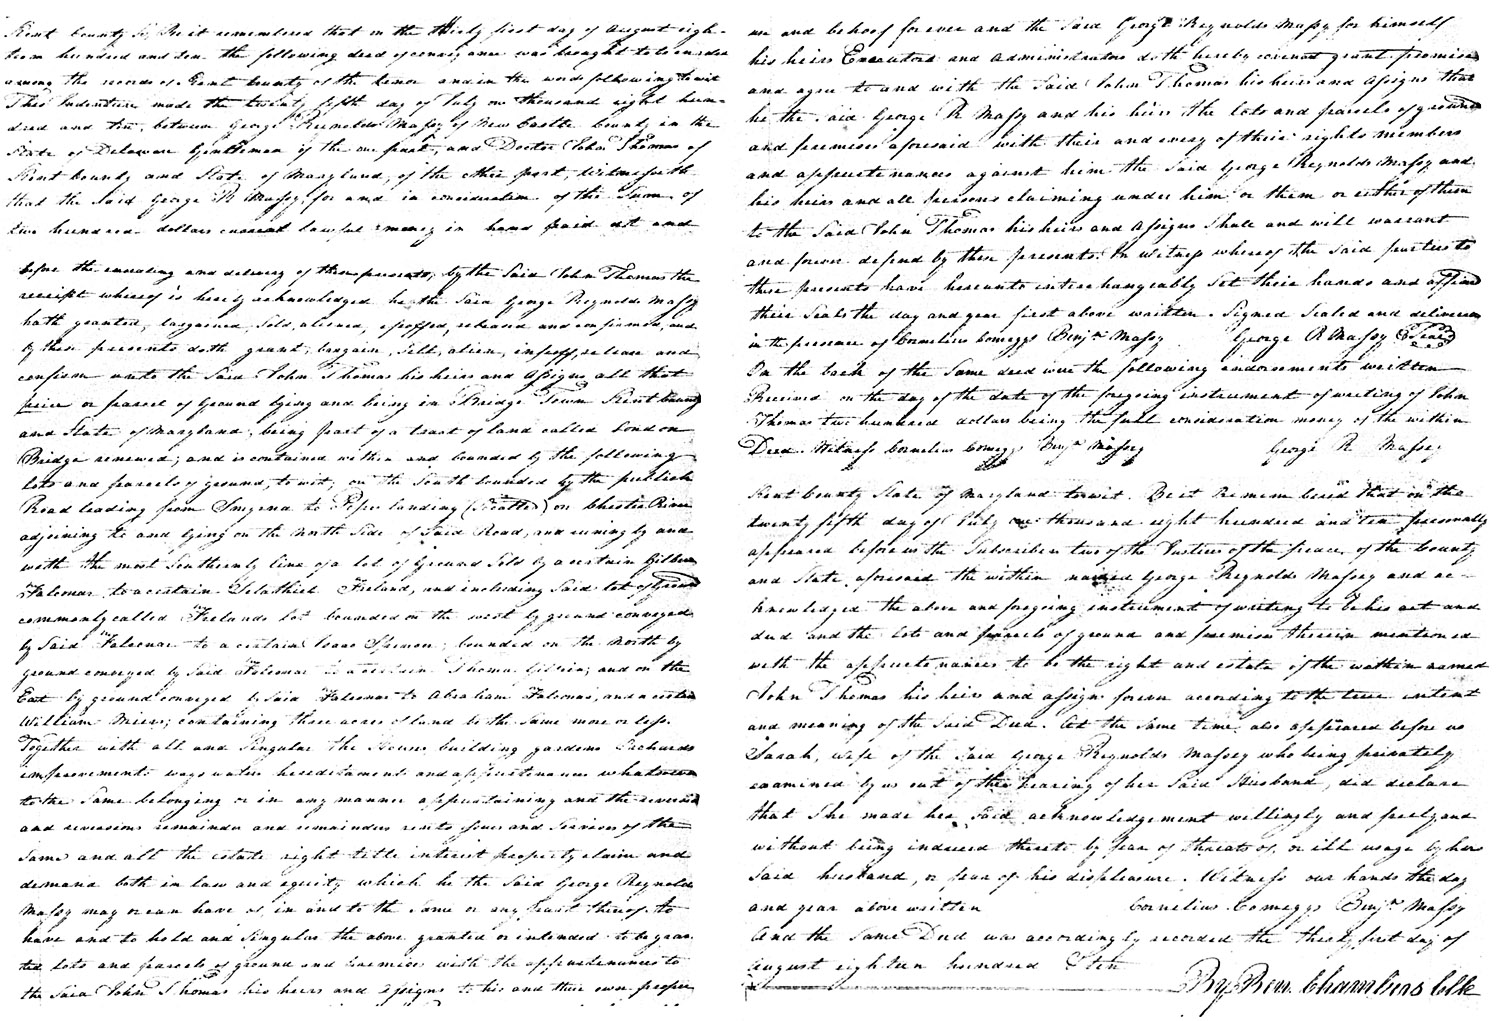 Kent County Ss. Be it remembered that on the thirty first day of August eigh-
teen hundred and ten the following deed of conveyance was brought to be recorded
among the records of Kent County of the tenor and in the words following to wit
This Indenture made the twenty fifth day of July one thousand eight hun-
dred and ten, between George Reynolds Massy of New Castle County in the
State of Delaware Gentleman of the one part, and Doctor John Thomas of
Kent County and State of Maryland, of the other part, Witnesseth
that the said George R Massy, for and in consideration of the Sum of
two hundred dollars current lawful money in hand paid at and
before the ensealing and delivery of these presents, by the Said John Thomas the
receipt whereof is hereby acknowledged he the Said George Reynolds Massy
hath granted, bargained, Sold, aliened, enfeoffed, released and confirmed, and
by these presents doth grant, bargain, Sell, alien, infeoff, release and
confirm unto the Said John Thomas his heirs and Assigns all that
peice or parcel of Ground lying and being in Bridge Town Kent County
and State of Maryland, being part of a tract of land called London
Bridge renewed; and is contained within and bounded by the following
lots and parcels of ground, to wit, on the South bounded by the publick
Road leading from Smyrna to Pipers landing (Scotts) on Chester River
adjoining to and lying on the North Side of Said Road, and runing by and
with the most Southernly line of a lot of Ground Sold by a certain Gilbert
Falconar to a certain Selathiel Freland, and including Said lot of ground
commonly called Frelands lot bounded on the west by ground conveyed
by Said Falconar to a certain Isaac Spencer; bounded on the North by
ground conveyed by Said Falconar to a certain Thomas Gilpin; and on the
East by ground conveyed by Said Falconar to Abraham Falconar, and a certain
William Miers, containing three acres of land be the Same more or less.
Together with all and Singular the Houses building gardens Orchards
improvements ways water hereditaments and appurtenances whatsoever
to the Same belonging or in any manner appertaining and the reversion
and reversions remainder and remainders rents issues and Services of the
Same and all the estate right title interest property claim and
demand both in law and equity which he the Said George Reynolds
Massy may or can have of, in and to the Same or any part thereof. To
have and to hold and Singular the above granted or intended to be gran-
ted lots and parcels of ground and premises with the appurtenances to
the Said John Thomas his heirs and Assigns to his and their own proper
use and behoof forever and the Said George Reynolds Massy for himself
his heirs Executors and administrators doth hereby covenant grant promise
and agree to and with the Said John Thomas his heirs and Assigns that
he the Said George R Massy and his heirs the lots and parcels of ground
and premises aforesaid with their and every of their rights members
and appurtenances against him the Said George Reynolds Massy and
his heirs and all Persons claiming under him or them or either of them
to the Said John Thomas his heirs and Assigns Shall and will warrant
and forever defend by these presents. In witness whereof the Said parties to
these presents have hereunto interchangeably Set their hands and affixed
their Seals the day and year first above written. Signed Sealed and delivered
in the presence of Cornelius Comeggs Benjn Massy George R Massy Seal
On the back of the Same deed were the following endorsements written
Received on the day of the date of the foregoing instrument of writing of John
Thomas two hundred dollars being the full consideration money of the within
Deed. Witness Cornelius Comeggs Benjn Massey George R. Massey
Kent County State of Maryland towit. Be it Remembered that on the
twenty fifth day of July one thousand eight hundred and ten personally
appeared before us the Subscribers two of the Justices of the peace, of the County
and State aforesaid the within named George Reynolds Massey and ac-
knowledged the above and foregoing instrument of writing to be his act and
deed and the lots and parcels of ground and premises therein mentioned
with the appurtenances to be the right and estate of the within named
John Thomas his heirs and assigns forever according to the true intent
and meaning of the Said Deed. At the Same time also appeared before us
Sarah, wife of the Said George Reynolds Massey who being privately
examined by us out of the hearing of her Said Husband, did declare
that She made her Said acknowledgement willingly and freely and
without being induced thereto by fear of threats of, or ill usage by her
Said husband, or fear of his displeasure. Witness our hands the day
and year above written Cornelius Comeggs Benjn Massy
And the Same Deed was accordingly recorded the thirty first day of
August eighteen hundred & ten
By Ben. Chambers Clk